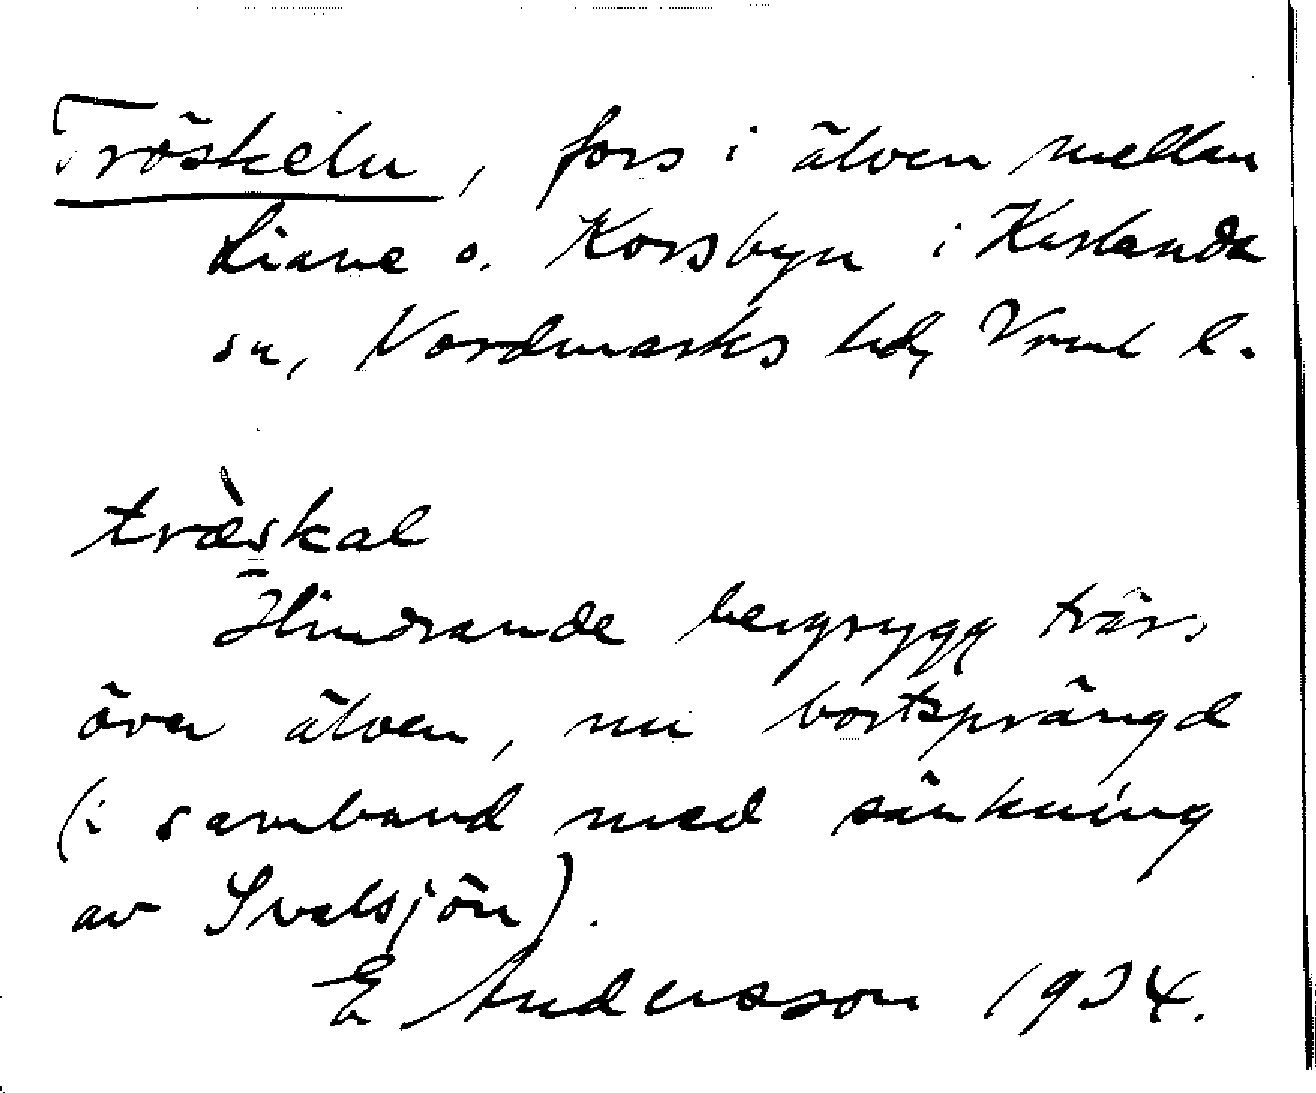 Tröskeln, fors i älven mellan
Liane o. Korsbyn i Karlanda
sn, Nordmarks hd, Vrml l.
træskal
Hindrande bergrygg tvärs
över älven, nu bortsprängd
(i samband med sänkning
av Svalsjön).
E Andersson 1934.